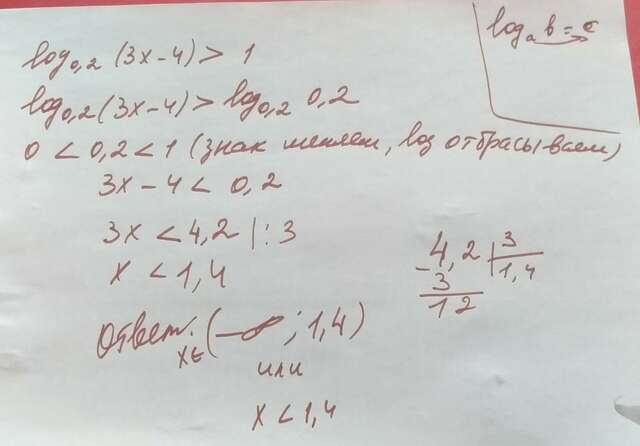 logₐ b = c
log₀,₂ (3x-4) > 1
log₀,₂ (3x-4) > log₀,₂ 0,2
0 < 0,2 < 1 (знак меняем, log отбрасываем)
3x-4 < 0,2
3x < 4,2 |:3
x < 1,4
4,2 | 3
- 3 1,4
12
Ответ: x∈ (-∞; 1,4)
или
x < 1,4